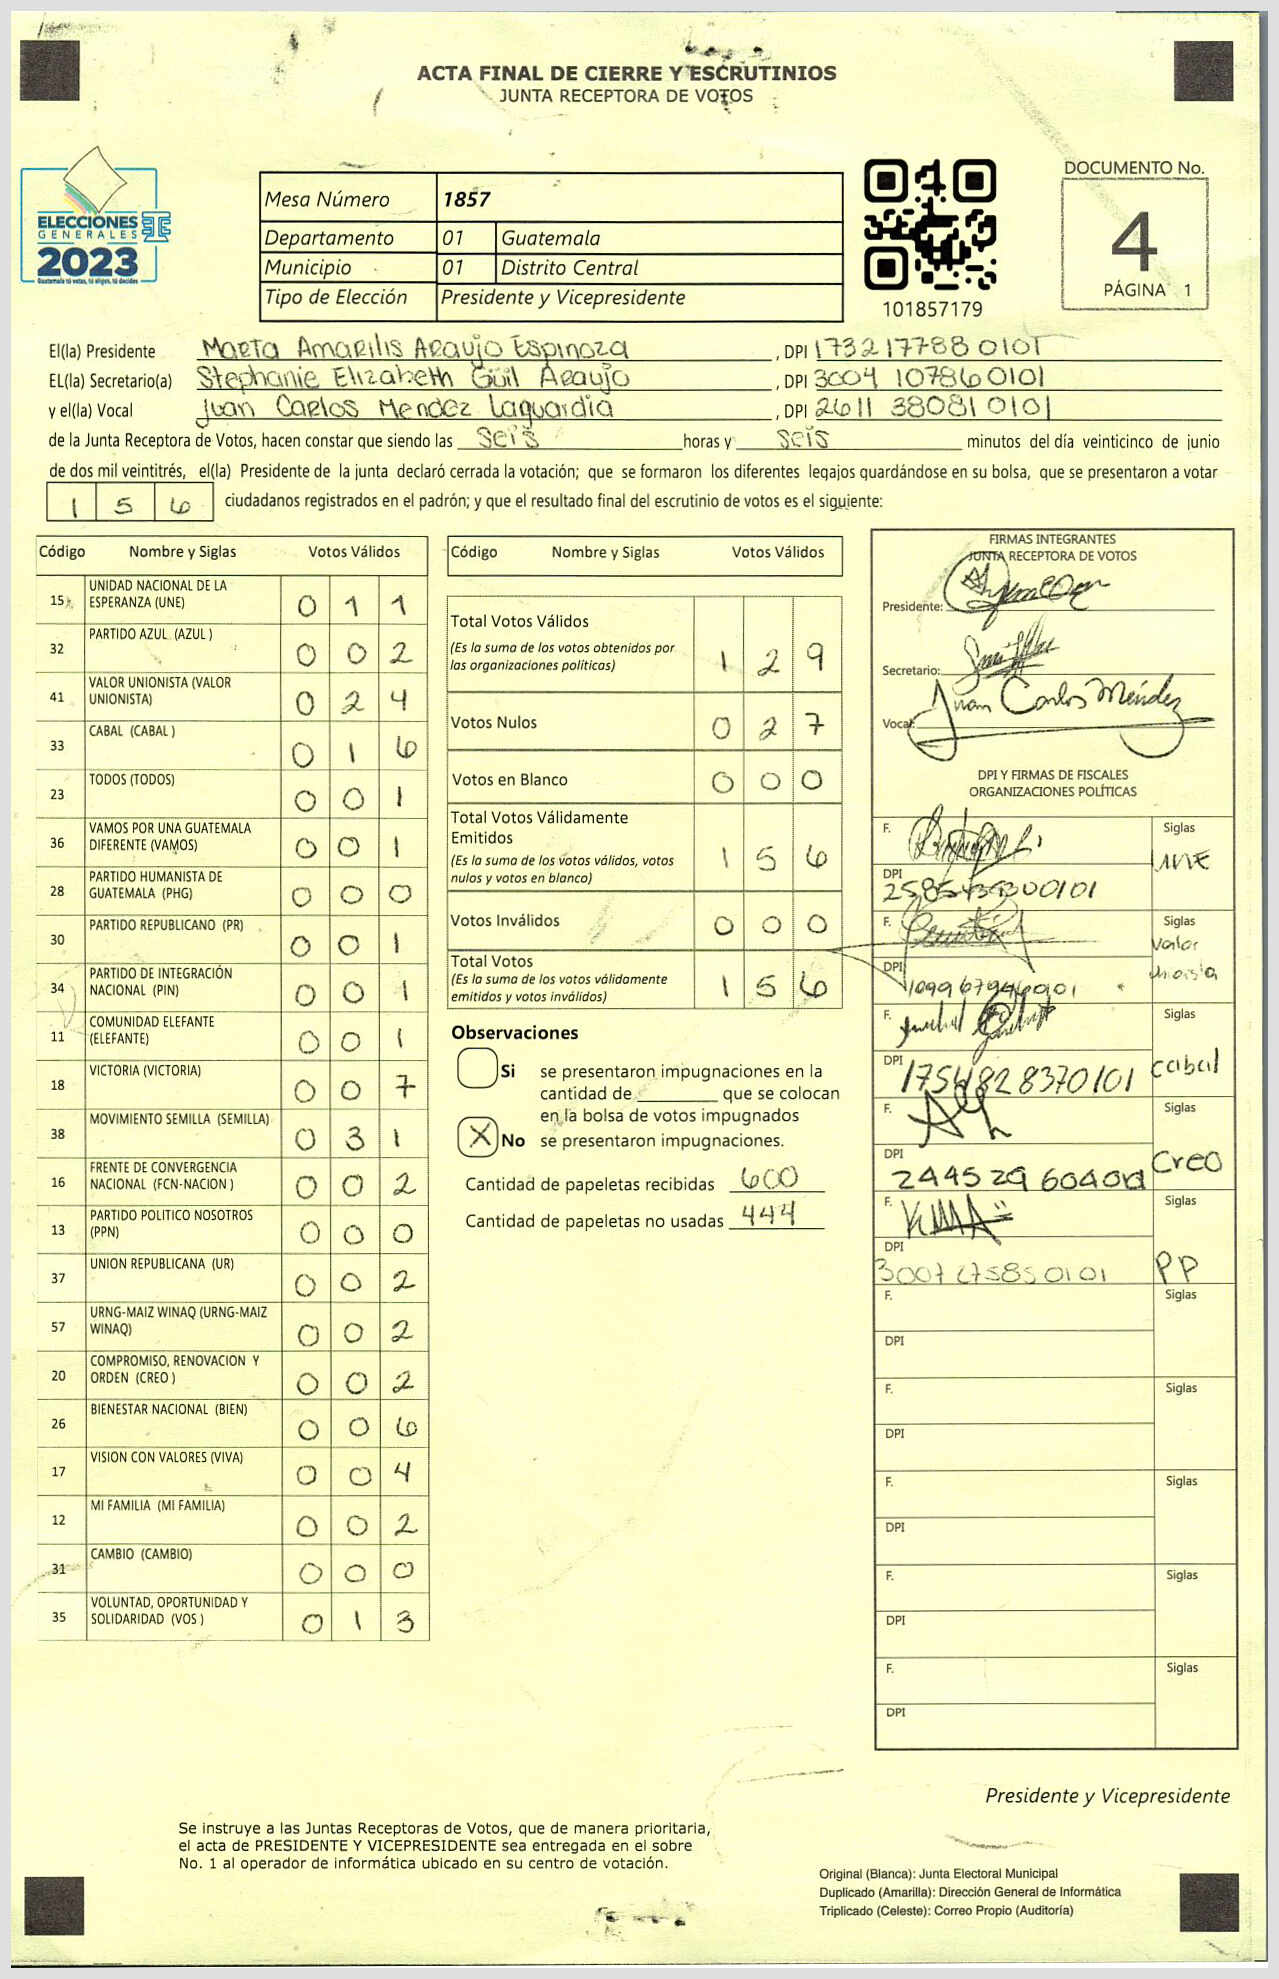 ACTA FINAL DE CIERRE Y ESCRUTINIOS
JUNTA RECEPTORA DE VOTOS
ELECCIONES
GENERALES
2023
Guatemala tú votas, tú eliges, tú decides
Mesa Número 1857
Departamento 01 Guatemala
Municipio 01 Distrito Central
Tipo de Elección Presidente y Vicepresidente
101857179
DOCUMENTO No.
4
PÁGINA 1
El(la) Presidente Marta Amarilis Araujo Espinoza , DPI 1732177880101
EL(la) Secretario(a) Stephanie Elizabeth Güil Araujo , DPI 3004 107860101
y el(la) Vocal Juan Carlos Mendez Laguardia , DPI 2611 38081 0101
de la Junta Receptora de Votos, hacen constar que siendo las seis horas y seis minutos del día veinticinco de junio
de dos mil veintitrés, el(la) Presidente de la junta declaró cerrada la votación; que se formaron los diferentes legajos quardándose en su bolsa, que se presentaron a votar
1 5 6 ciudadanos registrados en el padrón; y que el resultado final del escrutinio de votos es el siguiente:
Código Nombre y Siglas Votos Válidos
15 UNIDAD NACIONAL DE LA
ESPERANZA (UNE) 0 1 1
32 PARTIDO AZUL (AZUL ) 0 0 2
41 VALOR UNIONISTA (VALOR
UNIONISTA) 0 2 4
33 CABAL (CABAL ) 0 1 6
23 TODOS (TODOS) 0 0 1
36 VAMOS POR UNA GUATEMALA
DIFERENTE (VAMOS) 0 0 1
28 PARTIDO HUMANISTA DE
GUATEMALA (PHG) 0 0 0
30 PARTIDO REPUBLICANO (PR) 0 0 1
34 PARTIDO DE INTEGRACIÓN
NACIONAL (PIN) 0 0 1
11 COMUNIDAD ELEFANTE
(ELEFANTE) 0 0 1
18 VICTORIA (VICTORIA) 0 0 7
38 MOVIMIENTO SEMILLA (SEMILLA) 0 3 1
16 FRENTE DE CONVERGENCIA
NACIONAL (FCN-NACION ) 0 0 2
13 PARTIDO POLITICO NOSOTROS
(PPN) 0 0 0
37 UNION REPUBLICANA (UR) 0 0 2
57 URNG-MAIZ WINAQ (URNG-MAIZ
WINAQ) 0 0 2
20 COMPROMISO, RENOVACION Y
ORDEN (CREO ) 0 0 2
26 BIENESTAR NACIONAL (BIEN) 0 0 6
17 VISION CON VALORES (VIVA) 0 0 4
12 MI FAMILIA (MI FAMILIA) 0 0 2
31 CAMBIO (CAMBIO) 0 0 0
35 VOLUNTAD, OPORTUNIDAD Y
SOLIDARIDAD (VOS ) 0 1 3
Código Nombre y Siglas Votos Válidos
Total Votos Válidos
(Es la suma de los votos obtenidos por
las organizaciones políticas) 1 2 9
Votos Nulos 0 2 7
Votos en Blanco 0 0 0
Total Votos Válidamente
Emitidos
(Es la suma de los votos válidos, votos
nulos y votos en blanco) 1 5 6
Votos Inválidos 0 0 0
Total Votos
(Es la suma de los votos válidamente
emitidos y votos inválidos) 1 5 6
Observaciones
Si se presentaron impugnaciones en la
cantidad de ________ que se colocan
en la bolsa de votos impugnados
X No se presentaron impugnaciones.
Cantidad de papeletas recibidas 600
Cantidad de papeletas no usadas 444
FIRMAS INTEGRANTES
JUNTA RECEPTORA DE VOTOS
Presidente:
Secretario:
Vocal: Juan Carlos Méndez
DPI Y FIRMAS DE FISCALES
ORGANIZACIONES POLÍTICAS
F. Siglas
UNE
DPI
F. Siglas
Valor
Unionista
DPI
F. Siglas
cabal
DPI 1754828370101
F. Siglas
Creo
DPI
F. Siglas
PP
DPI
F. Siglas
DPI
F. Siglas
DPI
F. Siglas
DPI
F. Siglas
DPI
F. Siglas
DPI
Presidente y Vicepresidente
Se instruye a las Juntas Receptoras de Votos, que de manera prioritaria,
el acta de PRESIDENTE Y VICEPRESIDENTE sea entregada en el sobre
No. 1 al operador de informática ubicado en su centro de votación.
Original (Blanca): Junta Electoral Municipal
Duplicado (Amarilla): Dirección General de Informática
Triplicado (Celeste): Correo Propio (Auditoría)